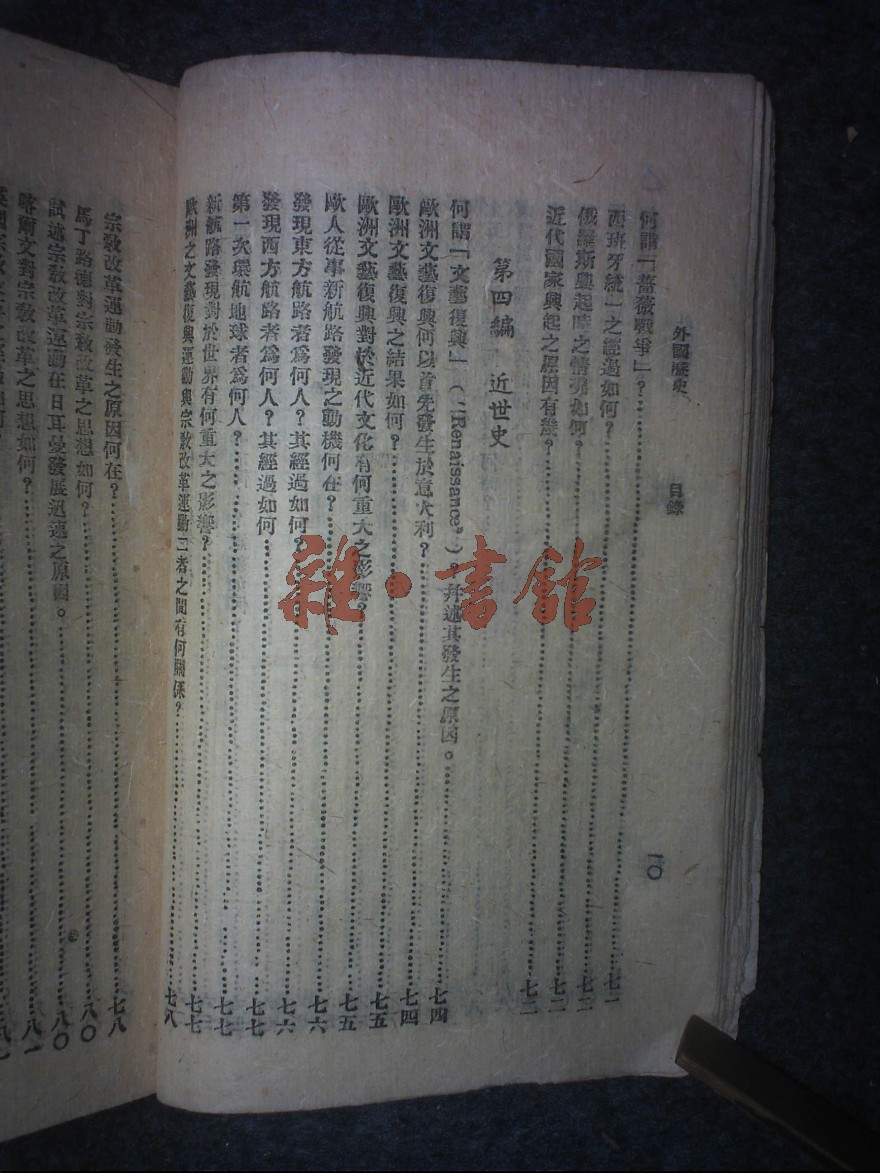 外國歷史 目錄 一〇
何謂「薔薇戰爭」？
西班牙統一之經過如何？……七一
俄羅斯興起時之情形如何？……七二
近代國家興起之原因有幾？……七二
第四編 近世史
何謂「文藝復興」（"Renaissance"）？幷述其發生之原因。……七四
歐洲文藝復興何以首先發生於意大利？……七四
歐洲文藝復興之結果如何？……七五
歐洲文藝復興對於近代文化有何重大之影響？……七五
歐人從事新航路發現之動機何在？……七六
發現東方航路者爲何人？其經過如何？……七六
發現西方航路者爲何人？其經過如何……七七
第一次環航地球者爲何人？……七七
新航路發現對於世界有何重大之影響？……七七
歐洲之文藝復興運動與宗敎改革運動二者之間有何關係？……七八
宗敎改革運動發生之原因何在？……七八
馬丁路德對宗敎改革之思想如何？……八〇
試述宗敎改革運動在日耳曼發展迅速之原因。……八〇
喀爾文對宗敎改革之思想如何？……八一
雜·書館